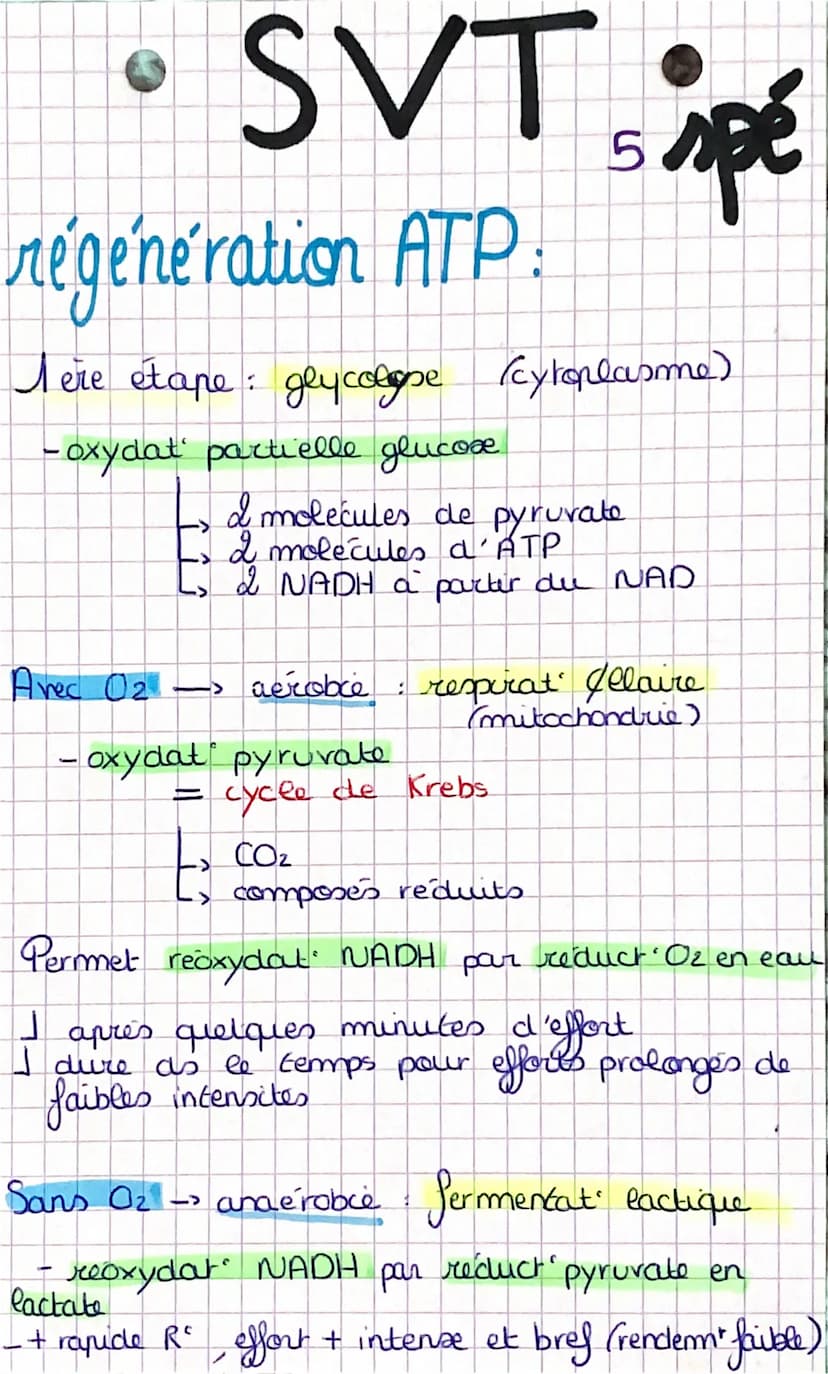 SVT
5 spé
régénération ATP :
1ère étape : glycolyse (cytoplasme)
- oxydat° partielle glucose
↳ 2 molécules de pyruvate
↳ 2 molécules d'ATP
↳ 2 NADH à partir du NAD
Avec O2 → aérobie : respirat° ¢ellaire
(mitochondrie)
- oxydat° pyruvate
= cycle de Krebs
↳ CO2
↳ composés réduits
Permet réoxydat° NADH par réduct° O2 en eau
après quelques minutes d'effort
dure ds le temps pour efforts prolongés de
faibles intensités
Sans O2 → anaérobie : fermentat° lactique
- réoxydat° NADH par réduct° pyruvate en
lactate
- + rapide R^c, effort + intense et bref (rendemt faible)